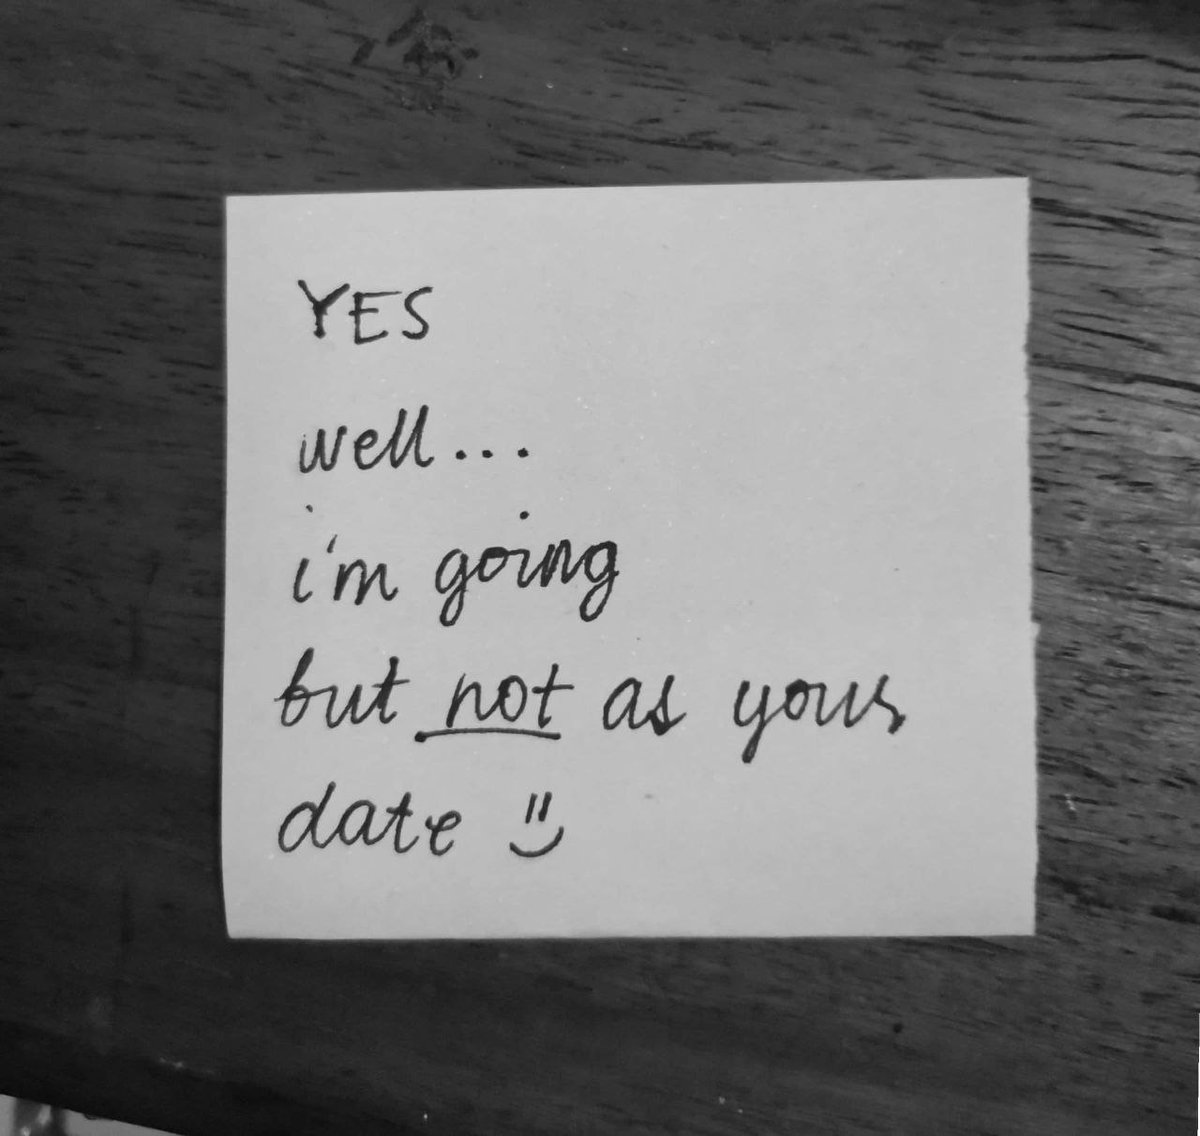 YES
well...
i'm going
but not as your
date ")